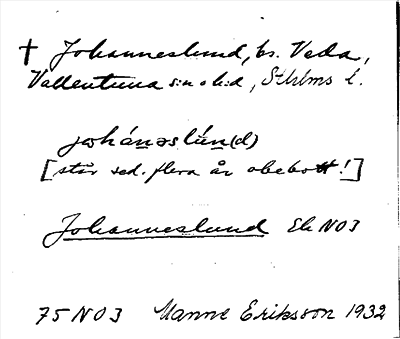 † Johanneslund, bs. Veda,
Vallentuna s:n o h:d, Sthlms l.
johánəslún(d)
[står sed. flera år obebott!]
Johanneslund Ek NO3
75 NO3 Manne Eriksson 1932